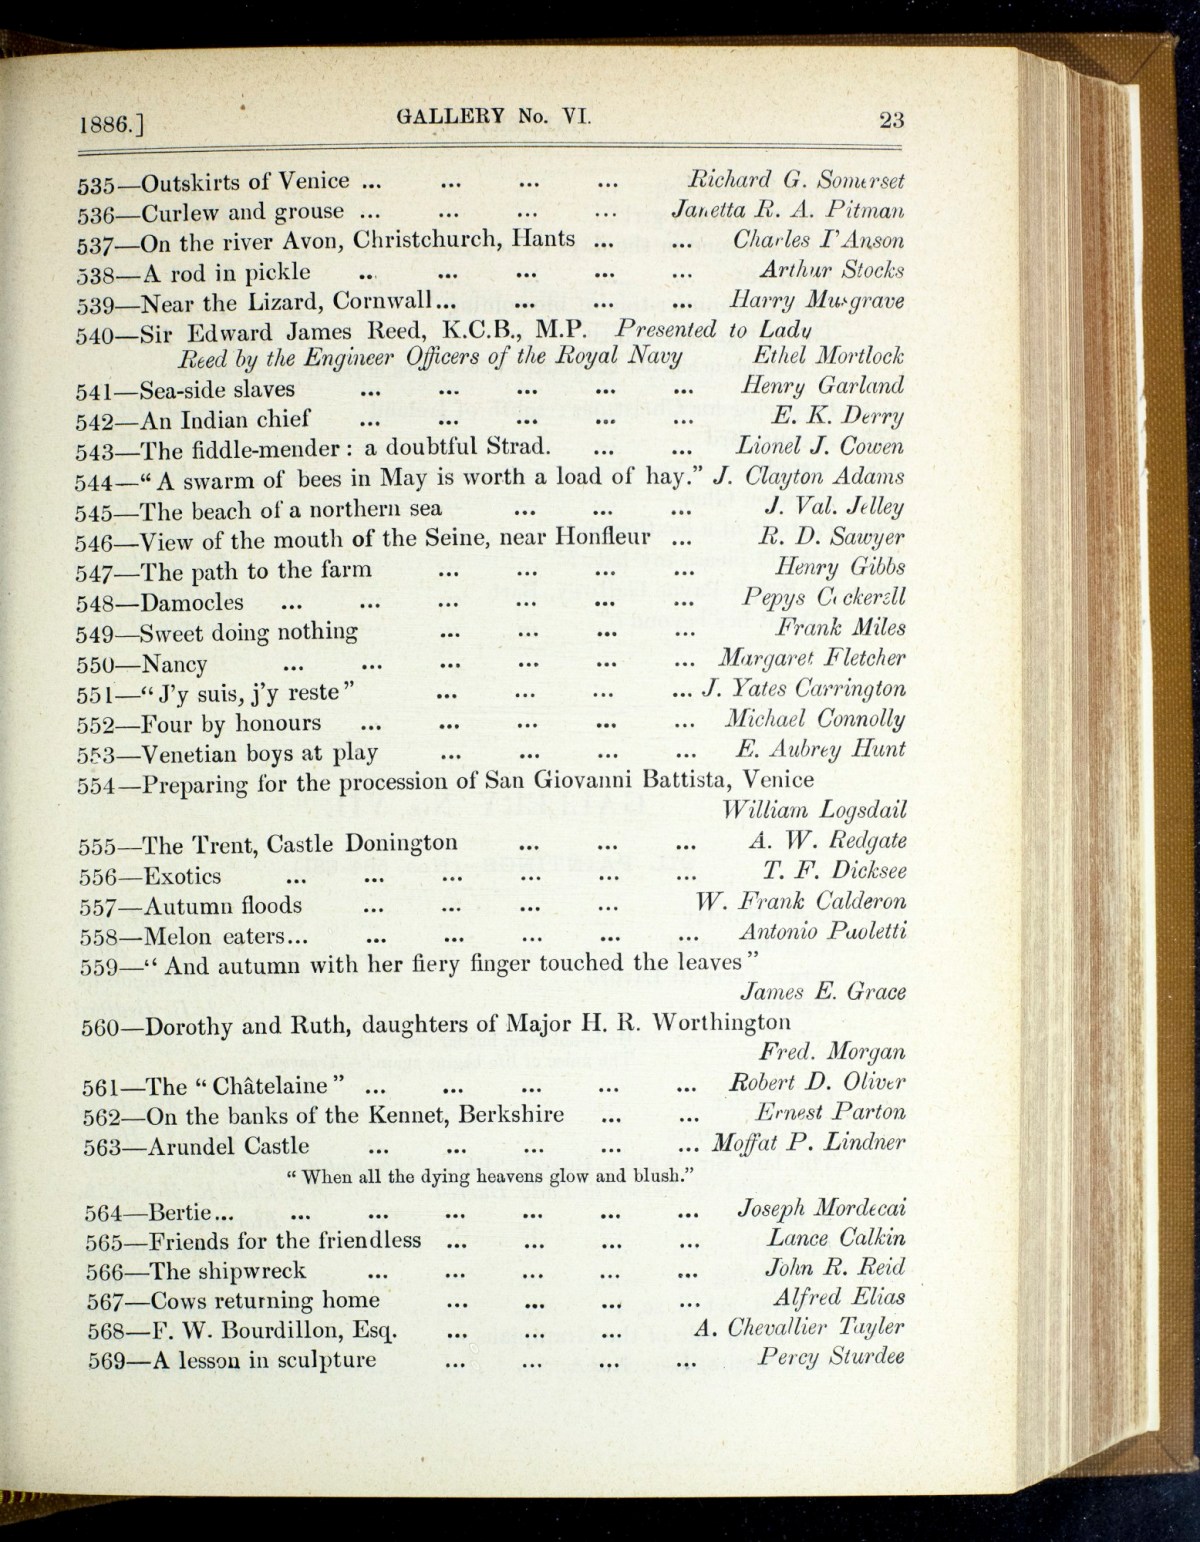 1886.] GALLERY No. VI. 23
535—Outskirts of Venice ... ... ... ... Richard G. Somerset
536—Curlew and grouse ... ... ... ... Janetta R. A. Pitman
537—On the river Avon, Christchurch, Hants ... ... Charles I'Anson
538—A rod in pickle ... ... ... ... ... Arthur Stocks
539—Near the Lizard, Cornwall... ... ... ... Harry Musgrave
540—Sir Edward James Reed, K.C.B., M.P. Presented to Lady
Reed by the Engineer Officers of the Royal Navy Ethel Mortlock
541—Sea-side slaves ... ... ... ... ... Henry Garland
542—An Indian chief ... ... ... ... ... E. K. Derry
543—The fiddle-mender : a doubtful Strad. ... ... Lionel J. Cowen
544—“ A swarm of bees in May is worth a load of hay.” J. Clayton Adams
545—The beach of a northern sea ... ... ... J. Val. Jelley
546—View of the mouth of the Seine, near Honfleur ... R. D. Sawyer
547—The path to the farm ... ... ... ... Henry Gibbs
548—Damocles ... ... ... ... ... ... Pepys Cockerell
549—Sweet doing nothing ... ... ... ... Frank Miles
550—Nancy ... ... ... ... ... ... Margaret Fletcher
551—“ J'y suis, j'y reste ” ... ... ... ... J. Yates Carrington
552—Four by honours ... ... ... ... ... Michael Connolly
553—Venetian boys at play ... ... ... ... E. Aubrey Hunt
554—Preparing for the procession of San Giovanni Battista, Venice
William Logsdail
555—The Trent, Castle Donington ... ... ... A. W. Redgate
556—Exotics ... ... ... ... ... ... T. F. Dicksee
557—Autumn floods ... ... ... ... W. Frank Calderon
558—Melon eaters... ... ... ... ... ... Antonio Paoletti
559—“ And autumn with her fiery finger touched the leaves ”
James E. Grace
560—Dorothy and Ruth, daughters of Major H. R. Worthington
Fred. Morgan
561—The “ Châtelaine ” ... ... ... ... ... Robert D. Oliver
562—On the banks of the Kennet, Berkshire ... ... Ernest Parton
563—Arundel Castle ... ... ... ... ... Moffat P. Lindner
“ When all the dying heavens glow and blush.”
564—Bertie... ... ... ... ... ... ... Joseph Mordecai
565—Friends for the friendless ... ... ... ... Lance Calkin
566—The shipwreck ... ... ... ... ... John R. Reid
567—Cows returning home ... ... ... ... Alfred Elias
568—F. W. Bourdillon, Esq. ... ... ... A. Chevallier Tayler
569—A lesson in sculpture ... ... ... ... Percy Sturdee